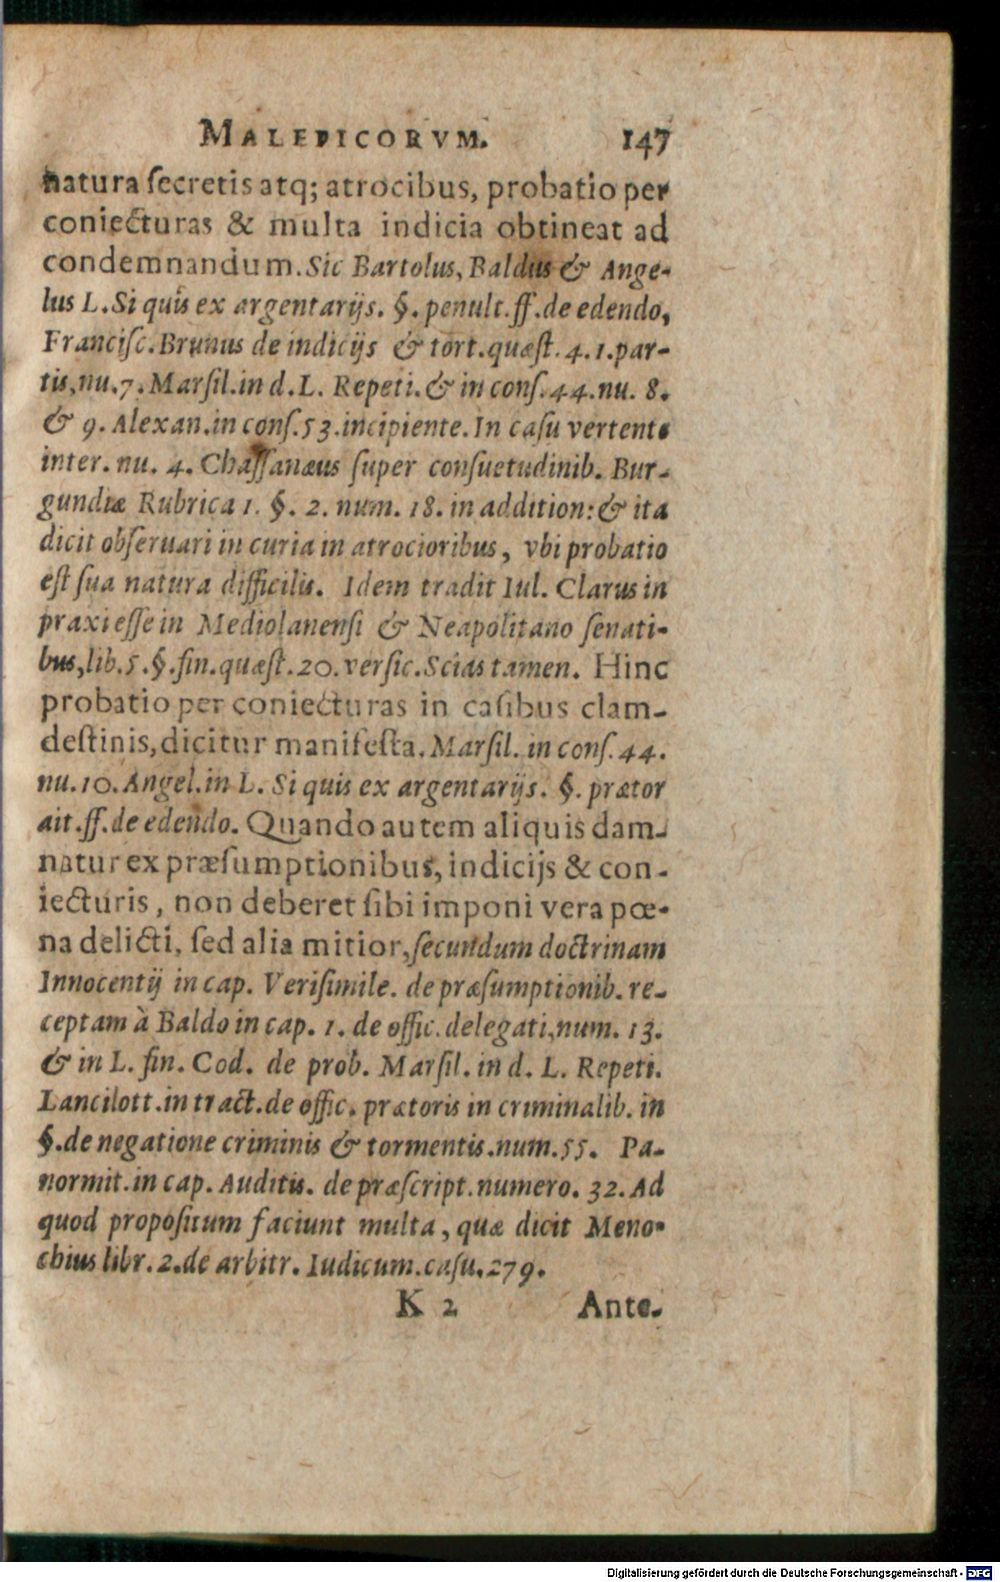 MALEFICORVM. 147
natura ſecretis atq; atrocibus, probatio per
coniecturas & multa indicia obtineat ad
condemnandum. Sic Bartolus, Baldus & Ange-
lus L. Si quis ex argentarijs. §. penult. ff. de edendo,
Franciſc. Brunus de indicijs & tort. quæſt. 4. 1. par-
tis, nu. 7. Marſil. in d. L. Repeti. & in conſ. 44. nu. 8.
& 9. Alexan. in conſ. 53. incipiente. In caſu vertente
inter. nu. 4. Chaſſanæus ſuper conſuetudinib. Bur-
gundiæ Rubrica 1. §. 2. num. 18. in addition: & ita
dicit obſeruari in curia in atrocioribus, vbi probatio
eſt ſua natura difficilis. Idem tradit Iul. Clarus in
praxi eſſe in Mediolanenſi & Neapolitano ſenati-
bus, lib. 5. §. fin. quæſt. 20. verſic. Scias tamen. Hinc
probatio per coniecturas in caſibus clam-
deſtinis, dicitur manifeſta. Marſil. in conſ. 44.
nu. 10. Angel. in L. Si quis ex argentarijs. §. prætor
ait. ff. de edendo. Quando autem aliquis dam-
natur ex præſumptionibus, indicijs & con-
iecturis, non deberet ſibi imponi vera pœ-
na delicti, ſed alia mitior, ſecundum doctrinam
Innocentij in cap. Veriſimile. de præſumptionib. re-
ceptam à Baldo in cap. 1. de offic. delegati, num. 13.
& in L. fin. Cod. de prob. Marſil. in d. L. Repeti.
Lancilott. in tract. de offic. prætoris in criminalib. in
§. de negatione criminis & tormentis. num. 55. Pa-
normit. in cap. Auditis. de præſcript. numero. 32. Ad
quod propoſitum faciunt multa, quæ dicit Meno-
chius libr. 2. de arbitr. Iudicum. caſu. 279.
K 2 Ante.
Digitalisierung gefördert durch die Deutsche Forschungsgemeinschaft - DFG